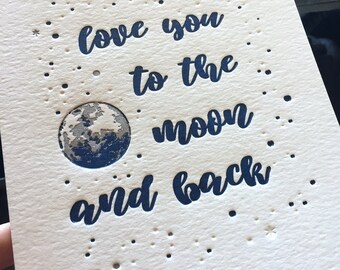 love you
to the
moon
and back